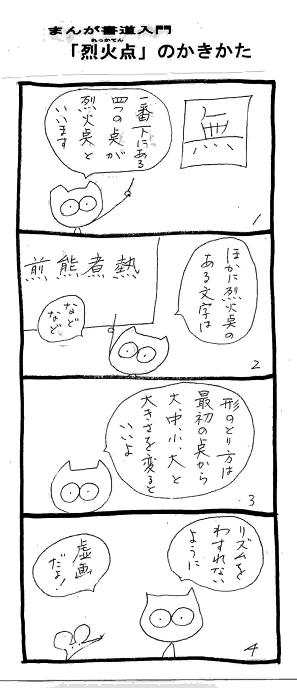 まんが書道入門
れっかてん
「烈火点」のかきかた
無
一番下にある
四つの点が
烈火点と
いいます
1
ほかに烈火点の
ある文字は
熱煮熊煎
などなど
2
形のとり方は
最初の点から
大、中、小、大と
大きさを変ると
いいよ
3
リズムを
わすれない
ように
虚画
だよ!
4